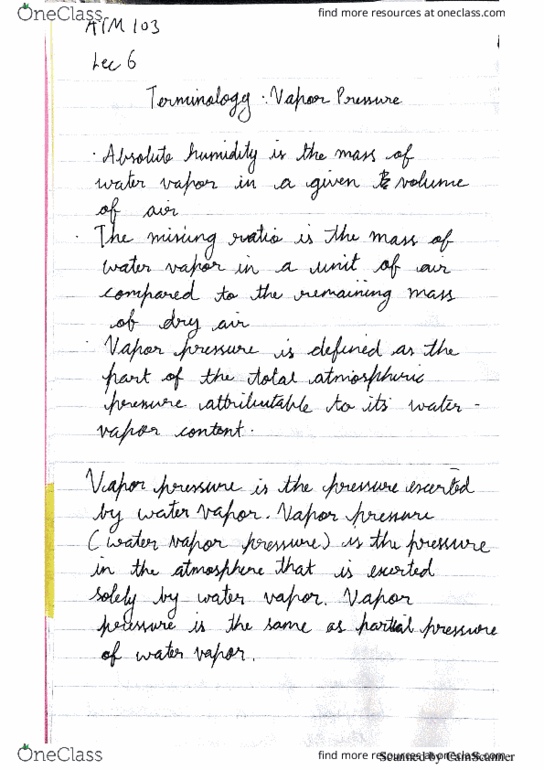 OneClass
find more resources at oneclass.com
ATM 103
Lec 6
Terminology : Vapor Pressure
· Absolute humidity is the mass of
water vapor in a given volume
of air
· The mixing ratio is the mass of
water vapor in a unit of air
compared to the remaining mass
of dry air
· Vapor pressure is defined as the
part of the total atmospheric
pressure attributable to its water-
vapor content.
Vapor pressure is the pressure exerted
by water vapor. Vapor pressure
(water vapor pressure) is the pressure
in the atmosphere that is exerted
solely by water vapor. Vapor
pressure is the same as partial pressure
of water vapor.
OneClass
find more resources at oneclass.com
Scanned by CamScanner